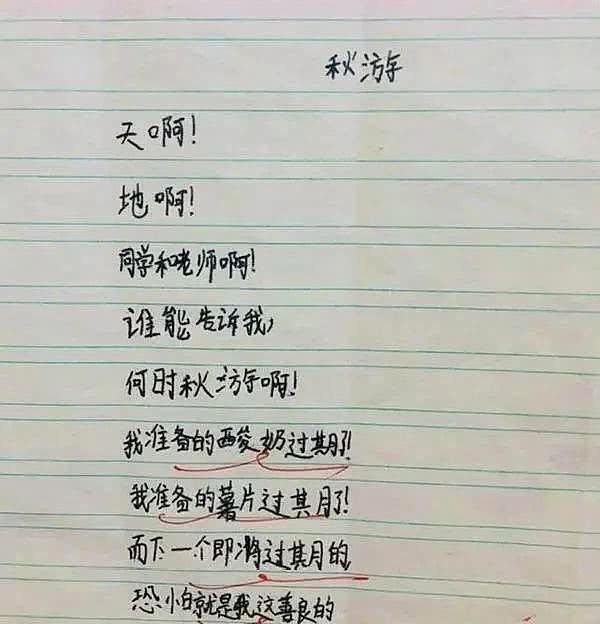 秋游
天啊!
地啊!
同学和老师啊!
谁能告诉我,
何时秋游啊!
我准备的酸奶过期了!
我准备的薯片过期了!
而下一个即将过期的
恐怕就是我这善良的